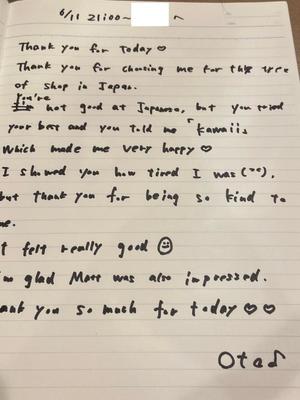 6/11 21:00~
Thank you for today♡
Thank you for choosing me for this type
of shop in Japan.
You're not good at Japanese, but you tried
your best and you told me 「kawaii」
which made me very happy♡
I showed you how tired I was
but thank you for being so kind to
me.
I felt really good ☺
I'm glad Matt was also impressed.
ank you so much for today♡♡